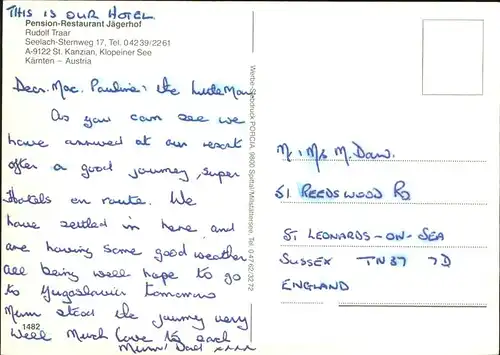 THIS IS OUR HOTEL
Pension-Restaurant Jägerhof
Rudolf Traar
Seelach-Sternweg 17, Tel. 0 42 39/22 61
A-9122 St. Kanzian, Klopeiner See
Kärnten – Austria
Dear Mac, Pauline, & the Little Man
As you can see we
have arrived at our resort
after a good journey, super
Hotels en route. We
have settled in here and
are having some good weather
all being well hope to go
to Yugoslavia tomorrow
Mum stood the journey very
well Much love to each
Mum, Dad xxxx
1482
PORCIA, 9800 Spittal/Millstättersee, Tel. 0 47 62/32 72
Mr & Mrs M. Daw.
51 REEDSWOOD RD
ST LEONARDS-ON-SEA
SUSSEX TN37 7D
ENGLAND